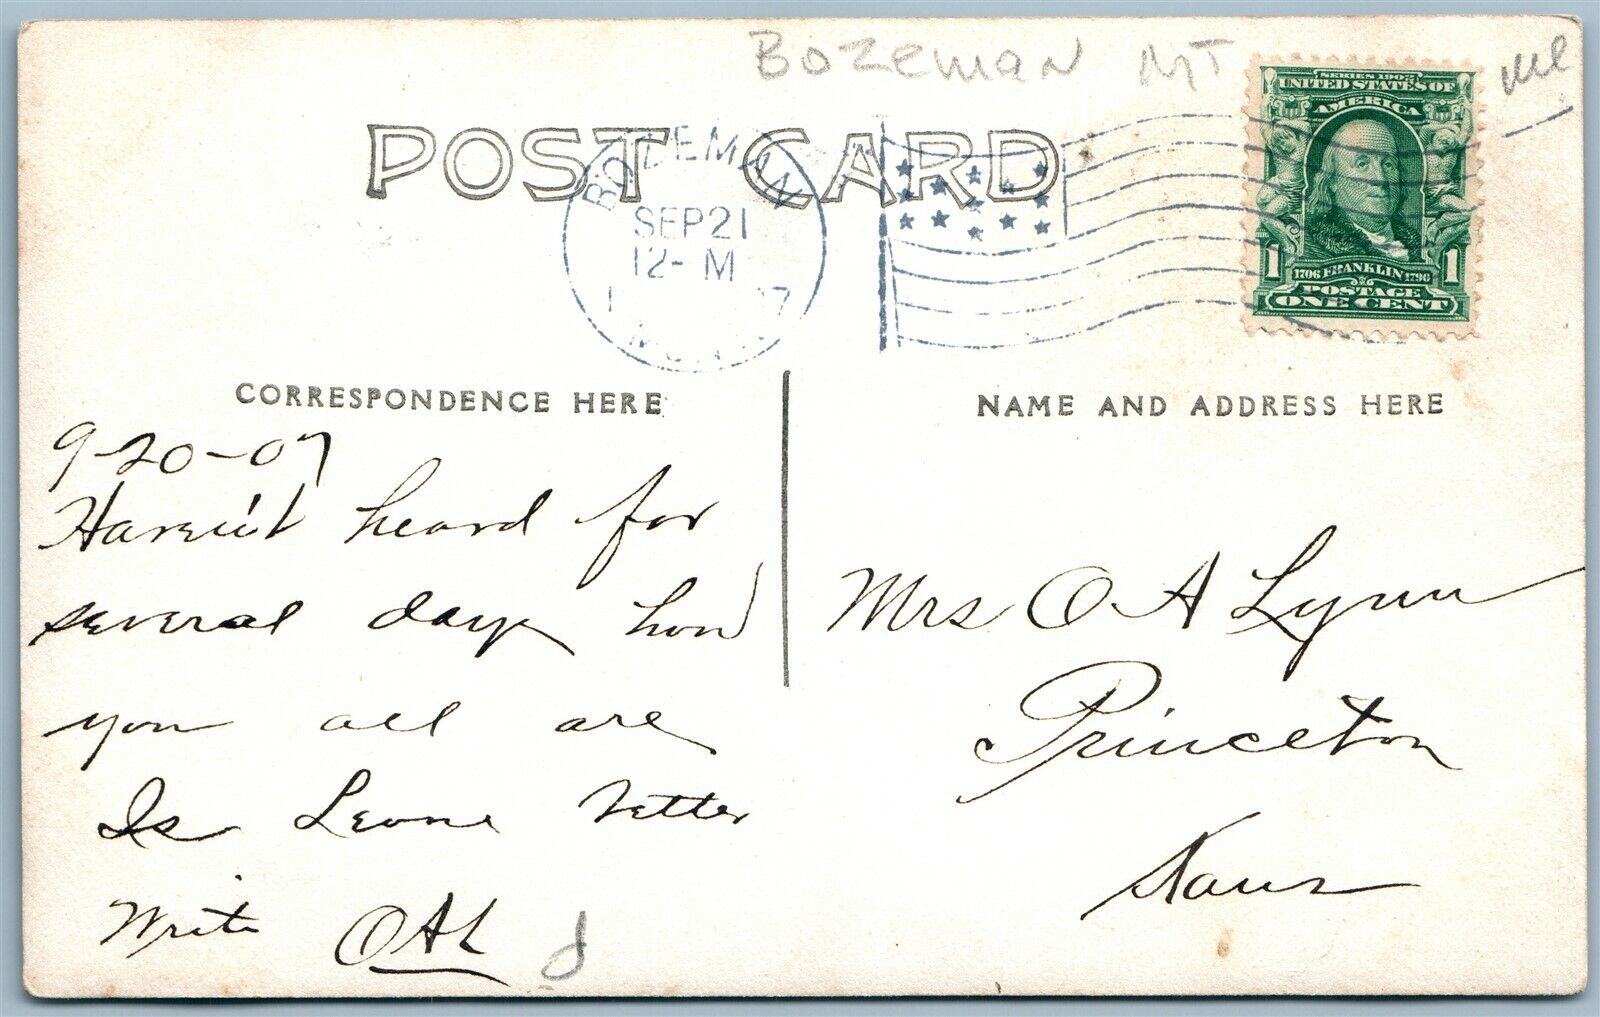 BOZEMAN MT
POST CARD
BOZEMAN
SEP 21
12-M
SERIES 1902
UNITED STATES OF
AMERICA
1 1706 FRANKLIN 1790 1
POSTAGE
ONE CENT
CORRESPONDENCE HERE
9-20-07
Havent heard for
several days how
you all are
Is Leone better
Write OAL
NAME AND ADDRESS HERE
Mrs O A Lynn
Princeton
Kans